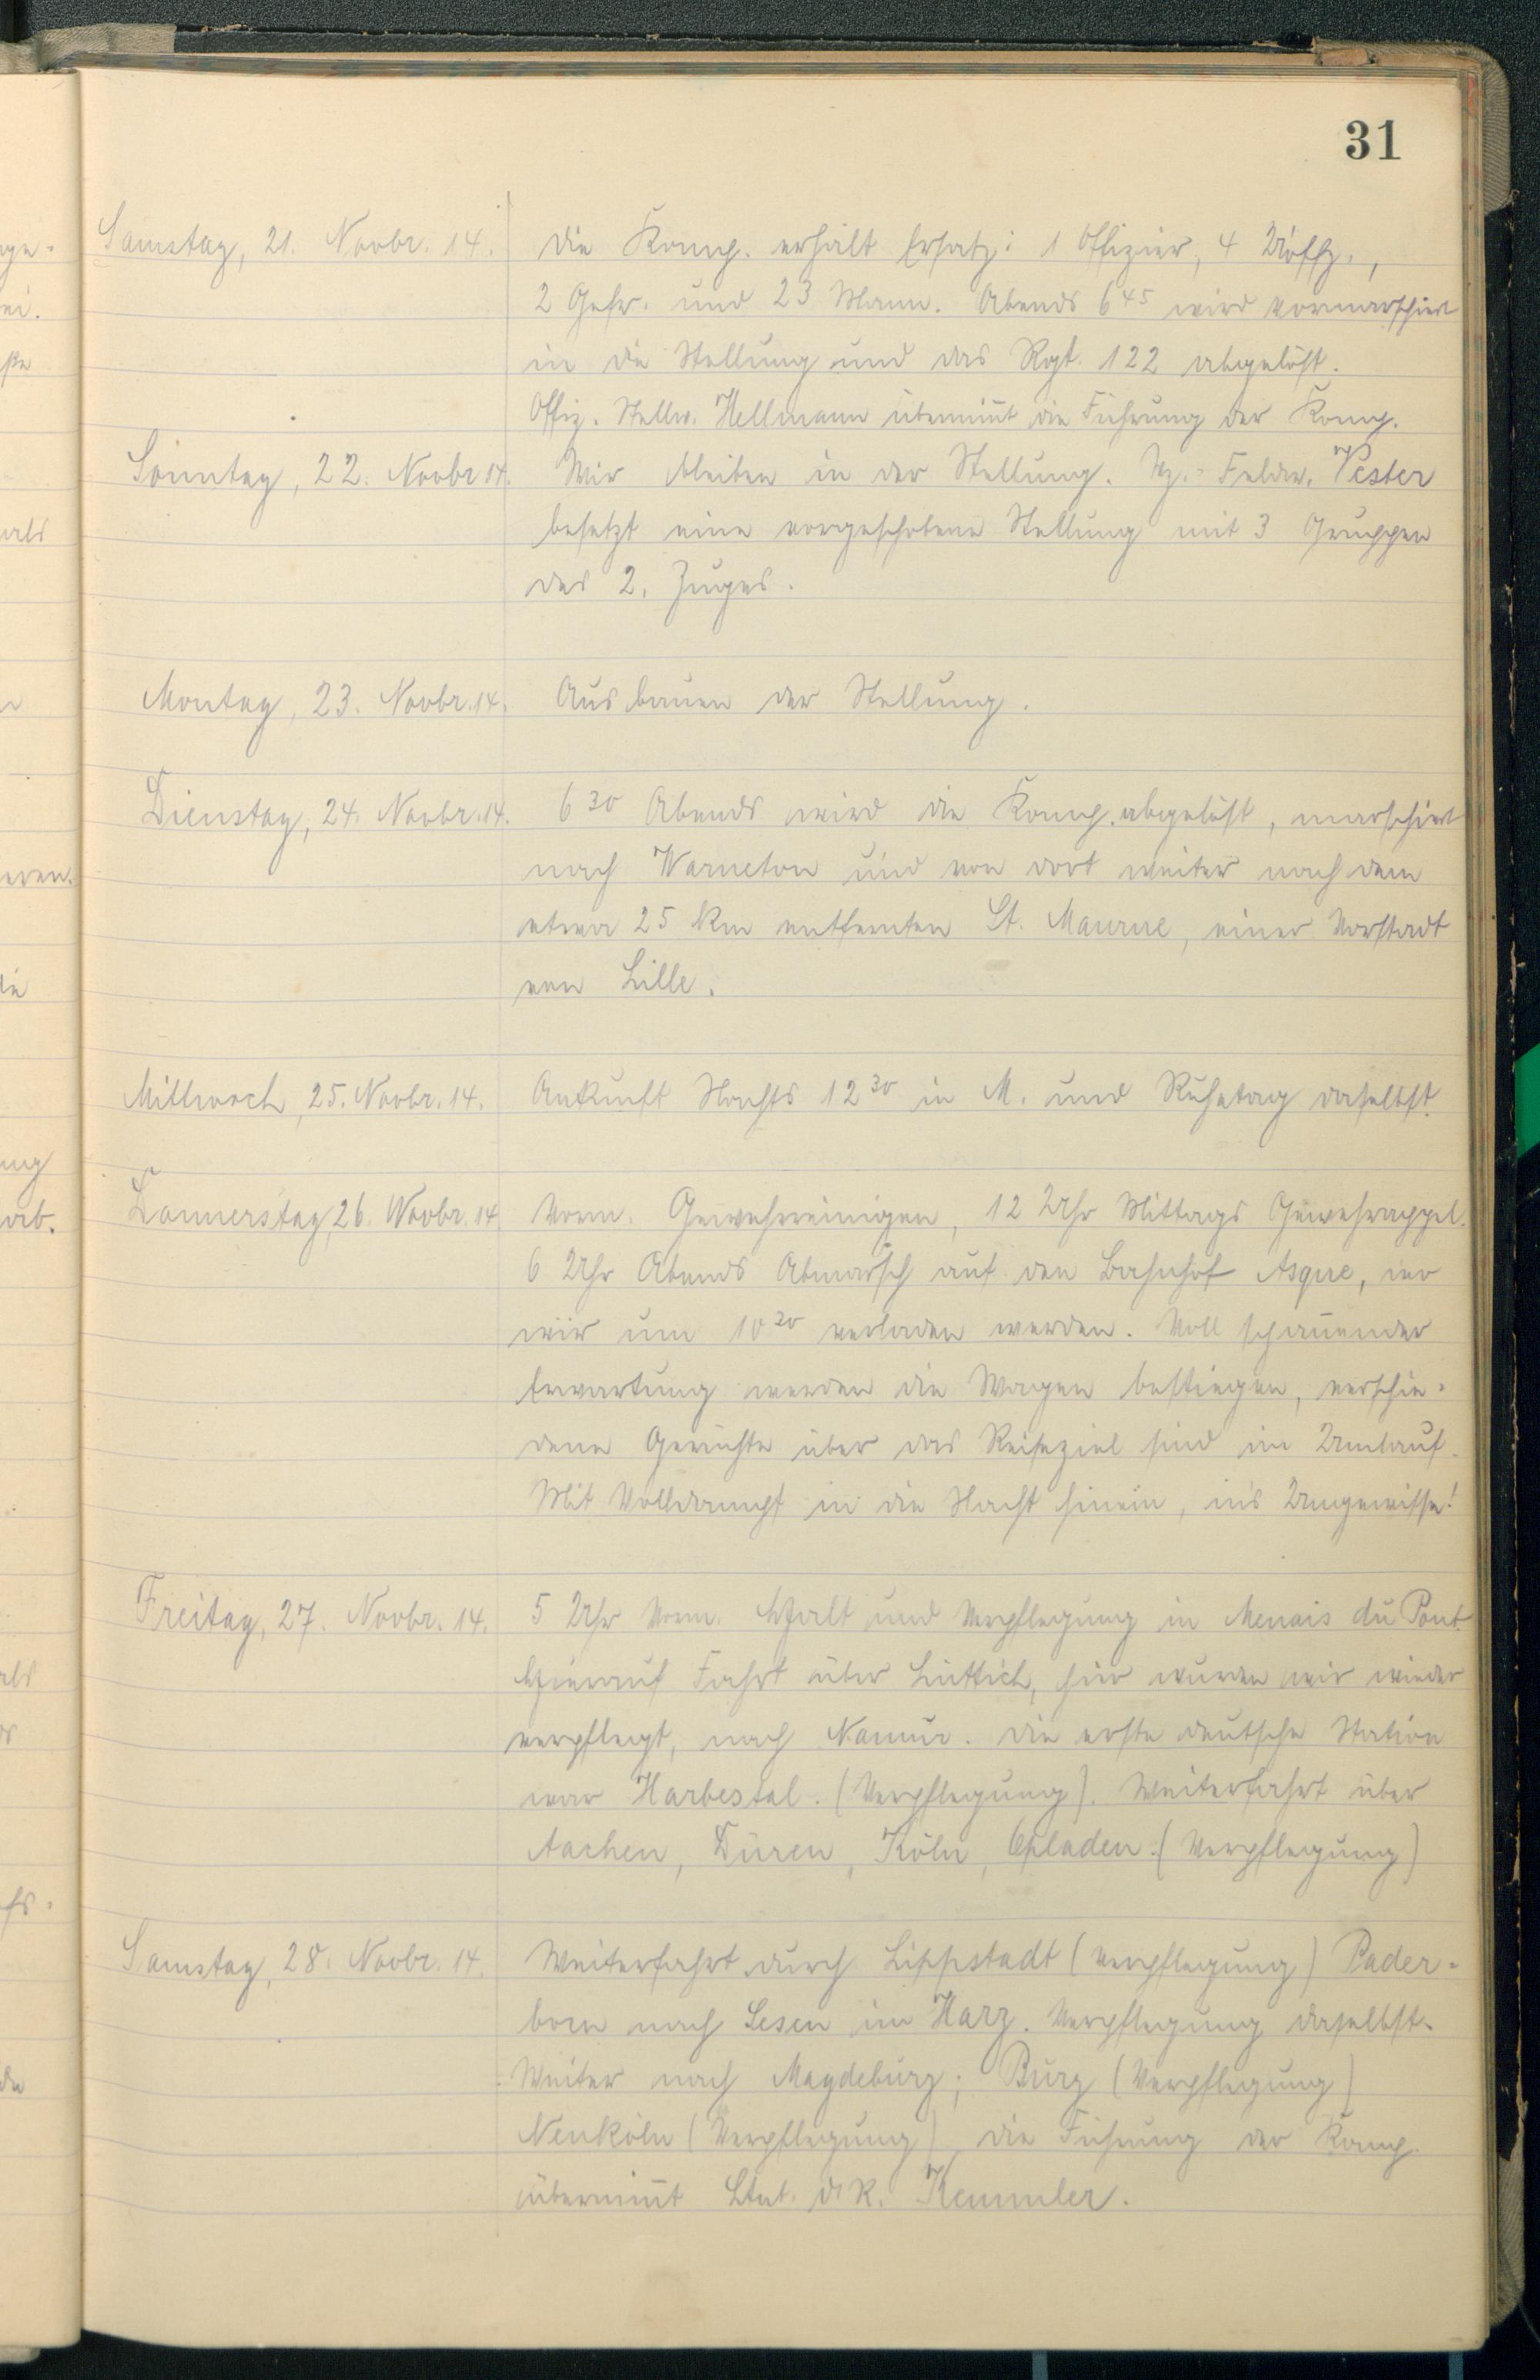 31
Samstag, 21. Novbr. 14. Die Komp. erhält Ersatz: 1 Offizier, 4 Uoffz.,
2 Gefr. und 23 Mann. Abends 6 45 wird vormarschiert
in die Stellung und das Rgt. 122 abgelöst.
Offiz. Stellv. Hellmann übernim̅t die Führung der Komp.
Sonntag, 22. Novbr 14. Wir bleiben in der Stellung. Vz.-Feldw. Vester
besetzt eine vorgeschobene Stellung mit 3 Gruppen
des 2. Zuges.
Montag, 23. Novbr. 14. Ausbauen der Stellung.
Dienstag, 24. Novbr. 14. 6 30 Abends wird die Komp. abgelöst, marschiert
nach Warneton und von dort weiter nach dem
etwa 25 km entfernten St. Maurne, einer Vorstadt
von Lille.
Mittwoch, 25. Novbr. 14. Ankunft Nachts 12 30 in M. und Ruhetag daselbst.
Donnerstag, 26. Novbr. 14. Vorm. Gewehrreinigen, 12 Uhr Mittags Gewehrappel.
6 Uhr Abends Abmarsch auf den Bahnhof Asque, wo
wir um 10 20 verladen werden. Voll spannender
Erwartung werden die Wagen bestiegen, verschie-
dene Gerüchte über das Reiseziel sind im Umlauf.
Mit Volldampf in die Nacht hinein, in's Ungewisse!
Freitag, 27. Novbr. 14. 5 Uhr Vorm. Halt und Verpflegung in Menais du Pont.
Hierauf Fahrt über Lüttich, hier wurden wir wieder
verpflegt, nach Namur. Die erste deutsche Station
war Harbestal. (Verpflegung). Weiterfahrt über
Aachen, Düren, Köln, Opladen. (Verpflegung)
Samstag, 28. Novbr. 14. Weiterfahrt durch Lippstadt (Verpflegung) Pader-
born nach Sesen im Harz. Verpflegung daselbst.
Weiter nach Magdeburg; Burg (Verpflegung)
Neuköln (Verpflegung) die Führung der Komp.
übernim̅t Ltnt. d. R. Kemmler.